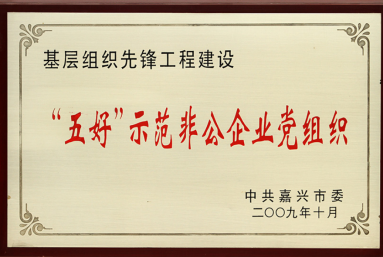 基层组织先锋工程建设
“五好”示范非公企业党组织
中共嘉兴市委
二〇〇九年十月